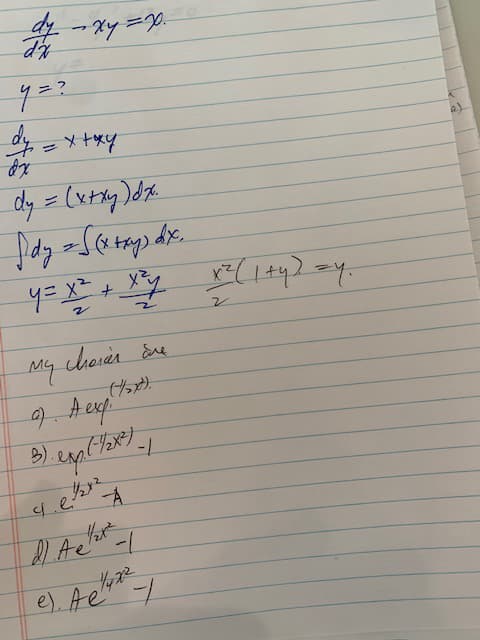 dy/dx - xy = x.
y = ?
dy/dx = x + xy
dy = (x+xy) dx.
∫dy = ∫(x+xy) dx.
y = x²/2 + x²y/2    x²/2 (1+y) = y.
My choices are
a). A exp.(-1/2x²).
B). exp.(-1/2x²) -1
c) e^1/2x² - A
d) Ae^1/2x² -1
e). Ae^1/4x² -1
a)